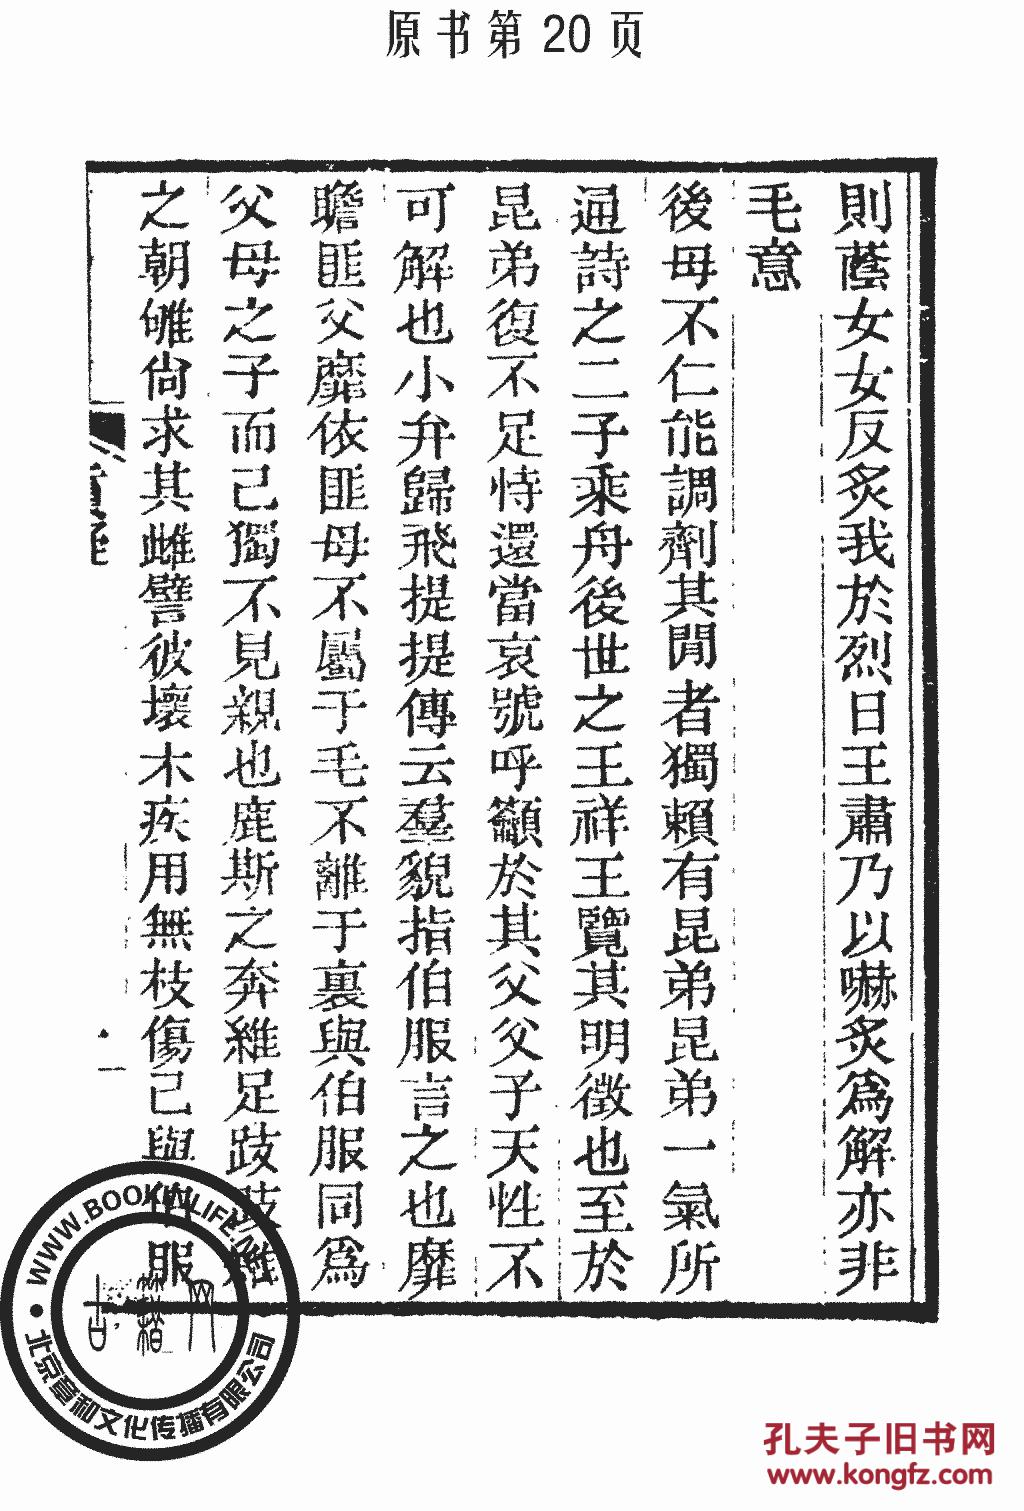 原书第20页
則蔭女女反炙我於烈日王肅乃以嚇炙爲解亦非
毛意
後母不仁能調劑其閒者獨賴有昆弟昆弟一氣所
通詩之二子乘舟後世之王祥王覽其明徵也至於
昆弟復不足恃還當哀號呼籲於其父父子天性不
可解也小弁歸飛提提傳云羣貌指伯服言之也靡
瞻匪父靡依匪母不屬于毛不離于裏與伯服同爲
父母之子而己獨不見親也鹿斯之奔維足跂跂雉
之朝雊尙求其雌譬彼壞木疾用無枝傷己與伯服
WWW.BOOKINLIFE.NET
北京章和文化传播有限公司
孔夫子旧书网
www.kongfz.com